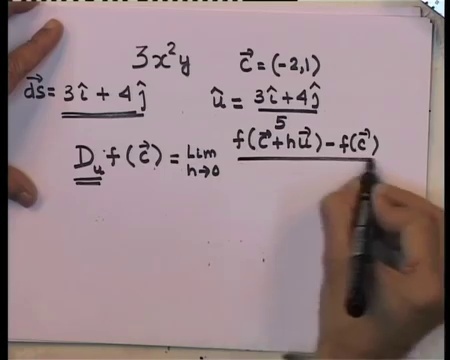 3x²y c⃗ = (-2,1)
d⃗s = 3î + 4ĵ û = (3î + 4ĵ)/5
D_u f(c⃗) = Lim h→0 f(c⃗ + hu⃗) - f(c⃗)